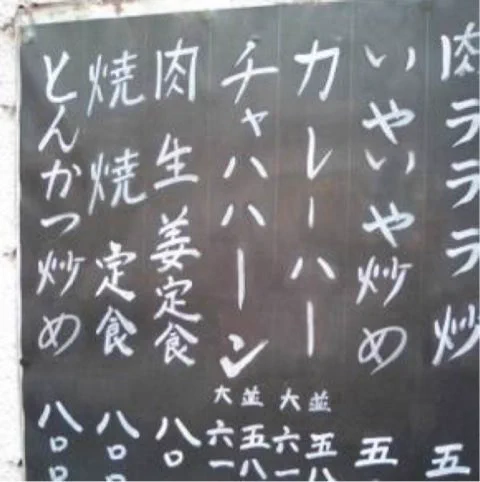 肉ラララ炒 五
いやいや炒め 五
カレーハー 並 五八
大 六一
チャハハーン 並 五八
大 六一
肉生姜定食 八〇
焼焼定食 八〇〇
とんかつ炒め 八〇〇